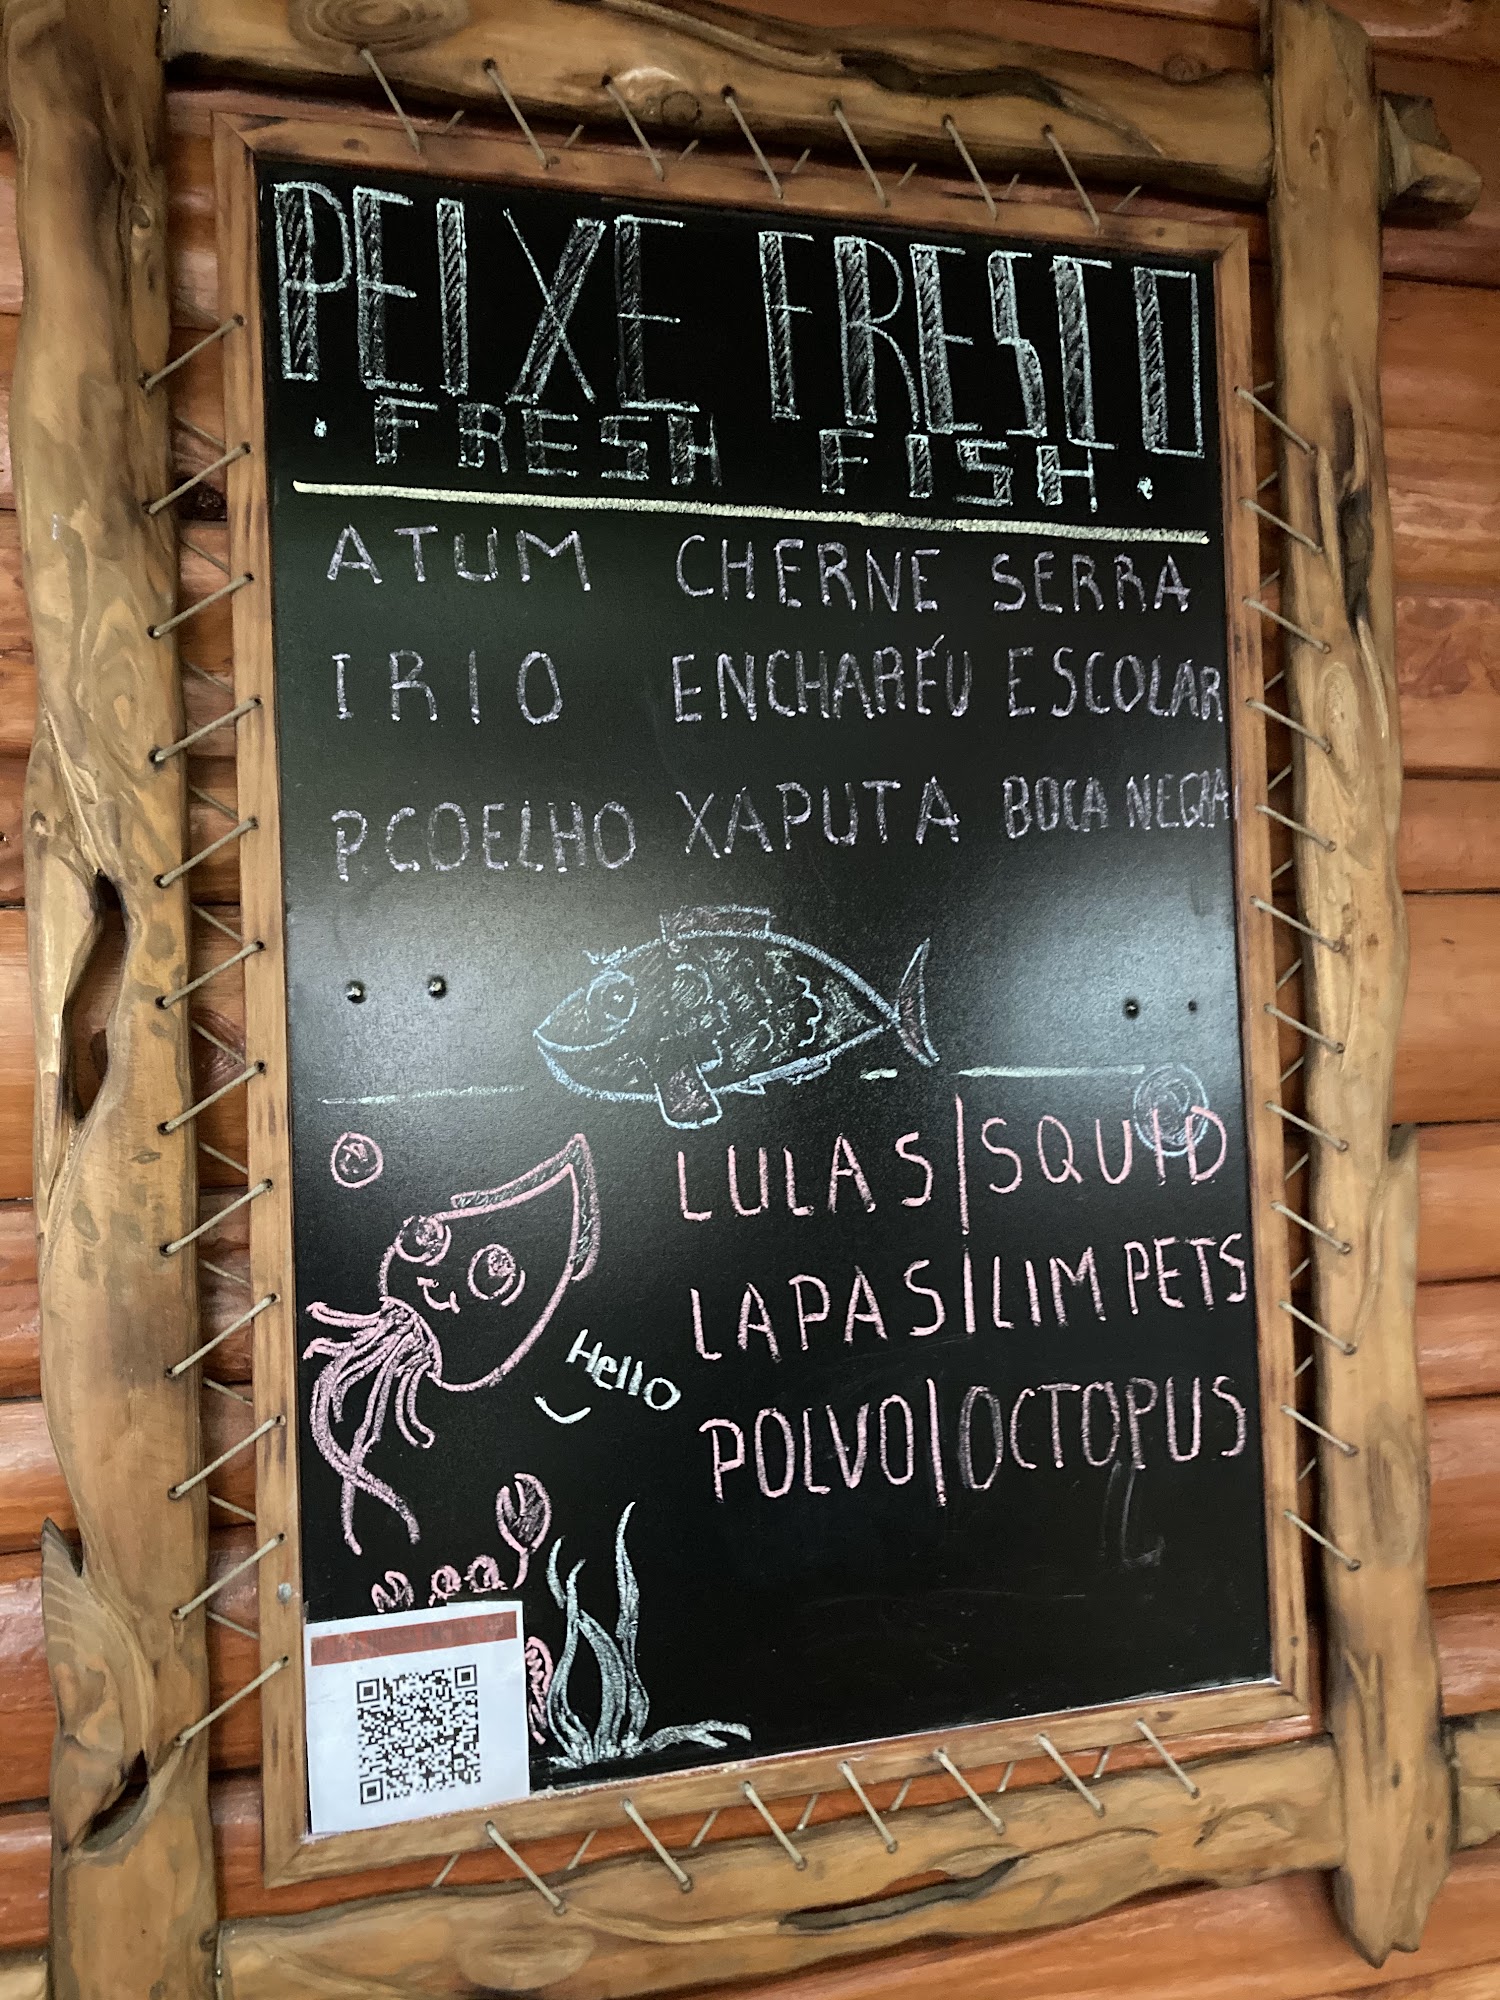 PEIXE FRESCO
FRESH FISH
ATUM CHERNE SERRA
IRIO ENCHARÉU ESCOLAR
PCOELHO XAPUTA BOCA NEGRA
LULAS|SQUID
LAPAS|LIMPETS
Hello
POLVO|OCTOPUS